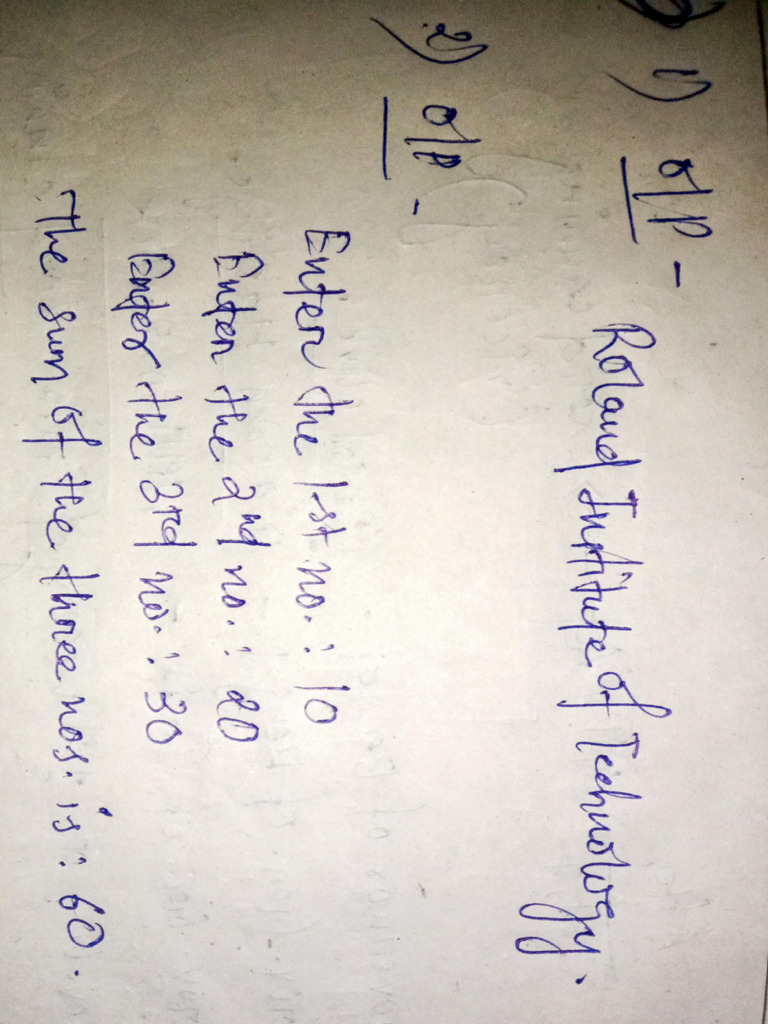 1) O/P -
Roland Institute of Technology.
2) O/P -
Enter the 1st no. : 10
Enter the 2nd no. : 20
Enter the 3rd no. : 30
The sum of the three nos. is : 60.